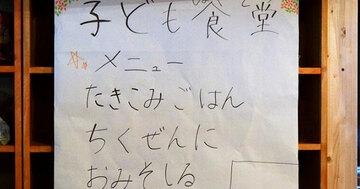 子ども食堂
☆メニュー
たきこみごはん
ちくぜんに
おみそしる